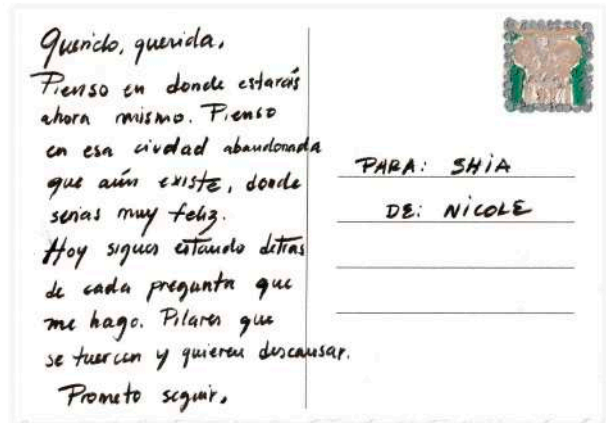 Querido, querida.
Pienso en donde estarás
ahora mismo. Pienso
en esa ciudad abandonada
que aún existe, donde
serias muy feliz.
Hoy sigues estando detras
de cada pregunta que
me hago. Pilares que
se tuercen y quieren descansar.
Prometo seguir.
PARA: SHIA
DE: NICOLE